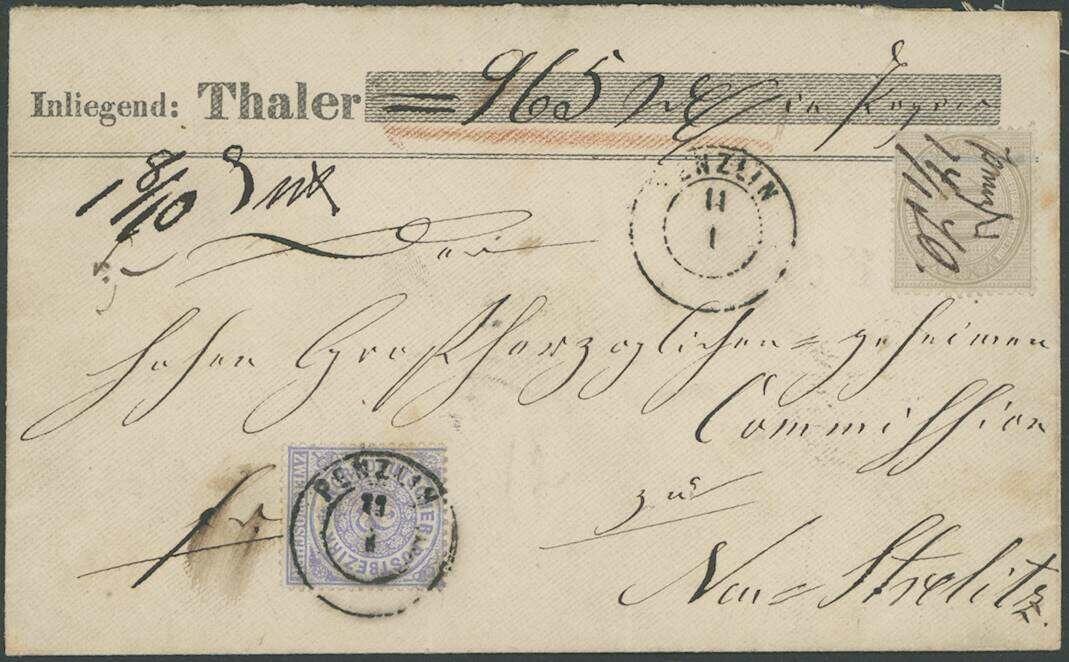 Inliegend: Thaler = 965 in
PENZLIN
11
1
11/1 70
1 8/10
Der
hohen Großherzoglichen = geheimen
Commission
zu
Neu = Strelitz.
fr
PENZLIN
11
1
POSTBEZIRK